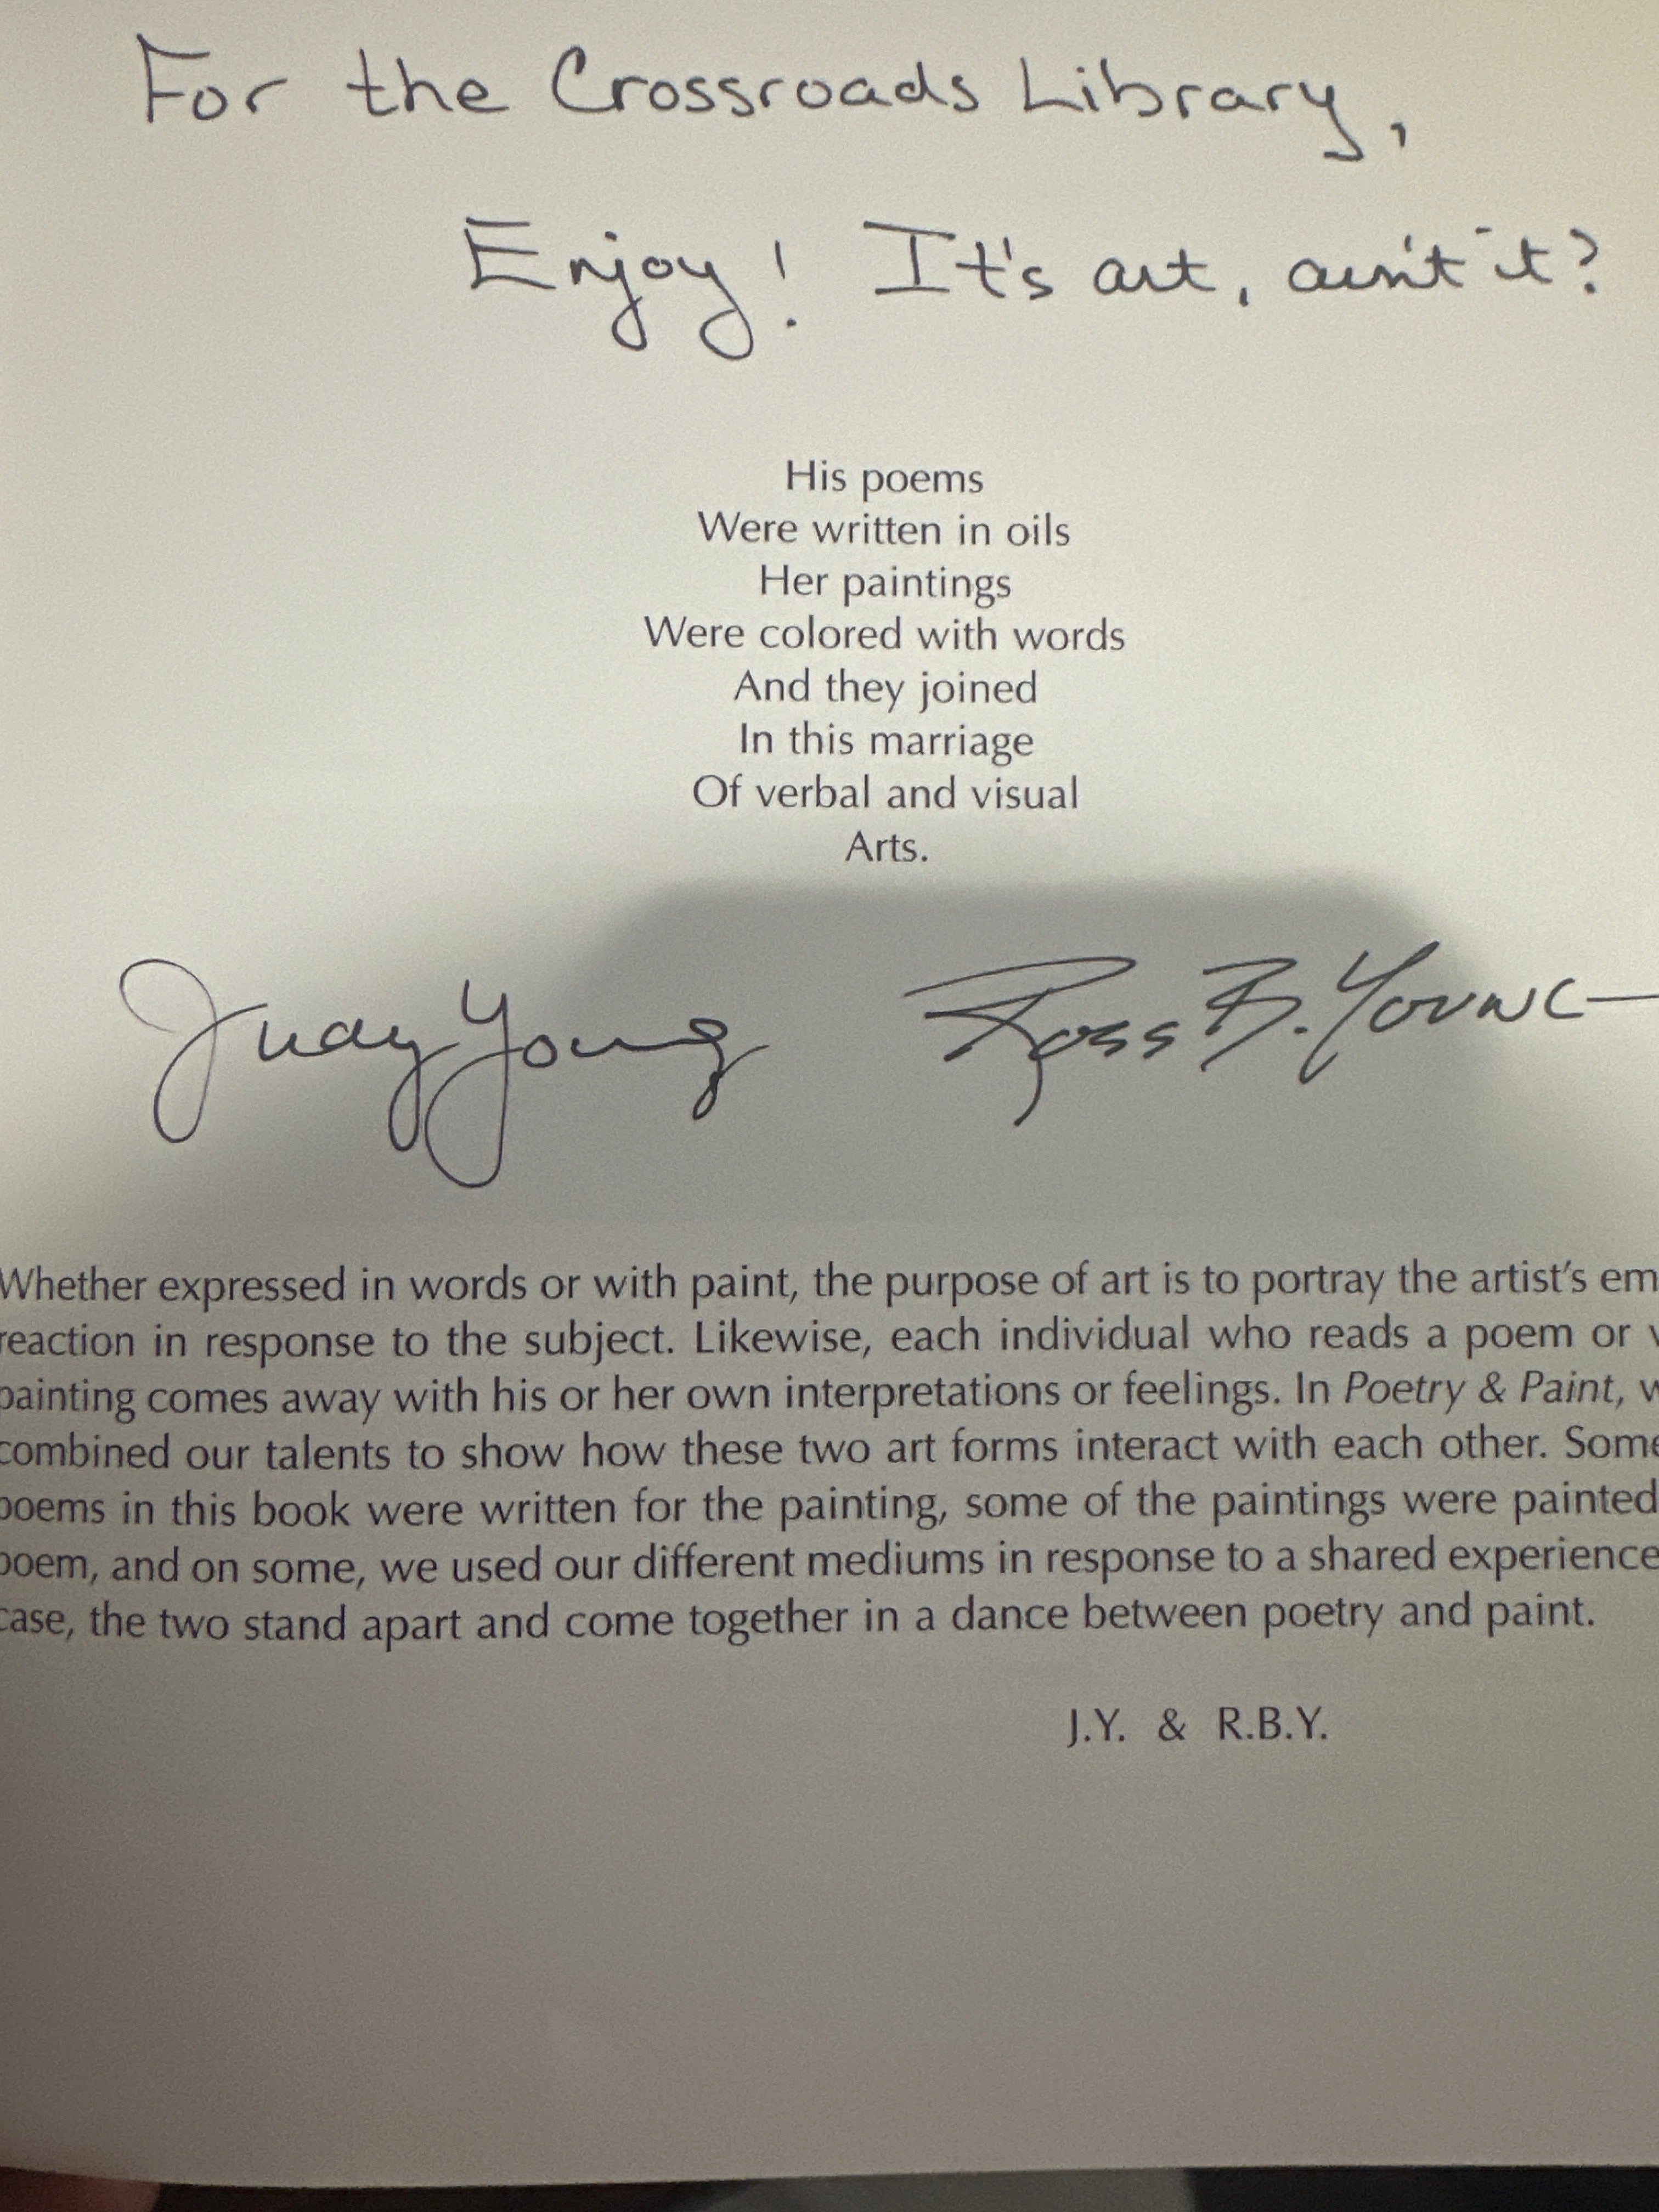 For the Crossroads Library,
Enjoy! It's art, ain't it?
His poems
Were written in oils
Her paintings
Were colored with words
And they joined
In this marriage
Of verbal and visual
Arts.
Judy Young Ross B. Young
Whether expressed in words or with paint, the purpose of art is to portray the artist's em
reaction in response to the subject. Likewise, each individual who reads a poem or
painting comes away with his or her own interpretations or feelings. In Poetry & Paint, w
combined our talents to show how these two art forms interact with each other. Some
poems in this book were written for the painting, some of the paintings were painted
poem, and on some, we used our different mediums in response to a shared experience
case, the two stand apart and come together in a dance between poetry and paint.
J.Y. & R.B.Y.